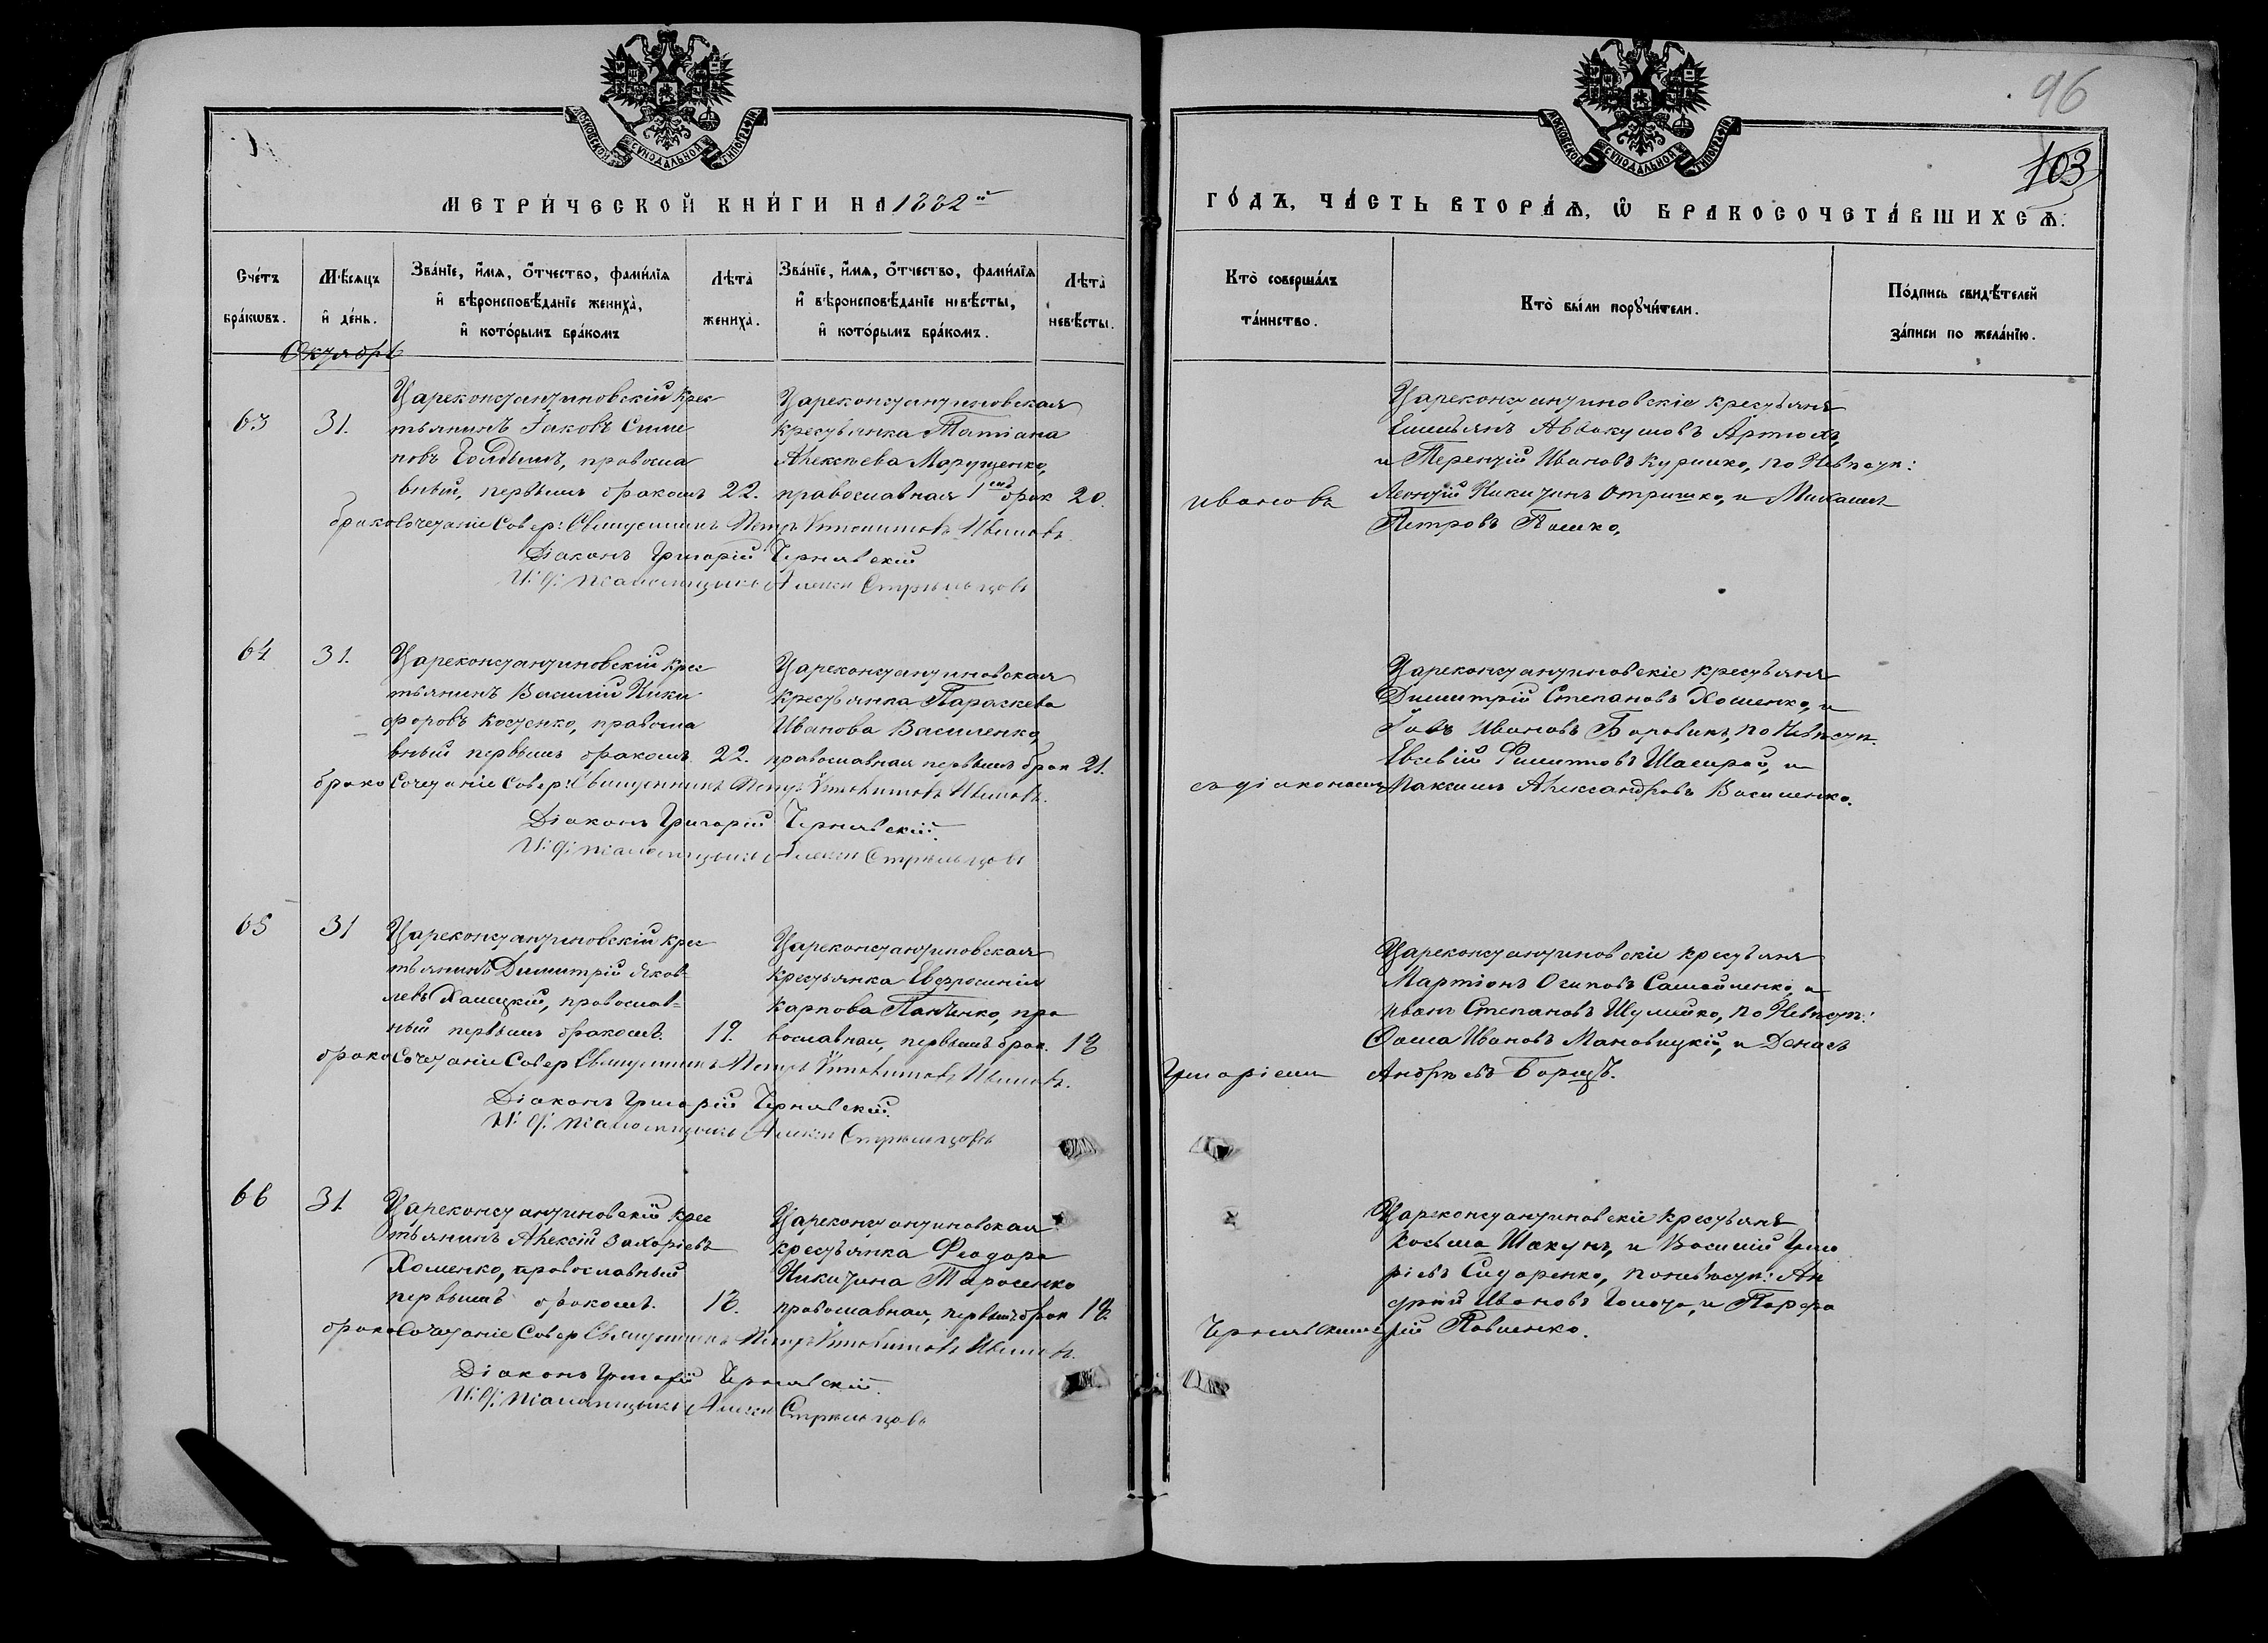 96
103
МОСКОВСКОЙ СѴНОДАЛЬНОЙ ТИПОГРАФІИ
МОСКОВСКОЙ СѴНОДАЛЬНОЙ ТИПОГРАФІИ
МЕТРИ́ЧЕСКОЙ КНИ́ГИ НА 1882й
ГО́ДЪ, ЧА́СТЬ ВТОРА́Ѧ, Ѡ҆ БРАКОСОЧЕТА́ВШИХСѦ.
Сче́тъ бра́кѡвъ.
Мѣ́сяцъ и҆ де́нь.
Зва́нїе, и҆́мѧ, ѻ҆́тчество, фами́лїѧ и҆ вѣроисповѣ́данїе жениха̀, и҆ кото́рымъ бра́комъ
Лѣта̀ жениха̀.
Зва́нїе, и҆́мѧ, ѻ҆́тчество, фами́лїѧ и҆ вѣроисповѣ́данїе невѣ́сты, и҆ кото́рымъ бра́комъ.
Лѣта̀ невѣ́сты.
Кто̀ соверша́лъ та́инство.
Кто̀ бы́ли порꙋчи́тели.
По́дпись свидѣ́телей за́писи по жела́нїю.
Октябрь
63
31.
Цареконстантиновскій крес
тьянинъ Іаковъ Симе
новъ
правосла
вный, первымъ бракомъ
22.
Цареконстантиновская
крестьянка Татіана
Алексѣева Марущенко,
православная 1мъ брак
20.
Ивановъ
Цареконстантиновскіе крестьяне
Емельянъ Аввакумовъ Артюхъ,
и Терентій Ивановъ Куришко, по Невѣст:
Леонтій Никитинъ Отришко, и Михаилъ
Петровъ Пашко,
бракосочетаніе совер: Священникъ Петръ Ивановъ
Діаконъ Григорій Чернявскій
И: д: псаломщика Алексѣй Стрѣльцовъ
64
31.
Цареконстантиновскій крес
тьянинъ Василій Ники
форовъ Костенко, правосла
вный первымъ бракомъ
22.
Цареконстантиновская
крестьянка Параскева
Иванова Василенко,
православная первымъ брак
21.
съ діакономъ
Цареконстантиновскіе крестьяне
Димитрій Степановъ Хоменко, и
Іовъ Ивановъ Боровикъ, по Невѣст.
Евсевій Филиповъ и
Максимъ Александровъ Василенко.
бракосочетаніе совер: Священникъ Петръ Ивановъ.
Діаконъ Григорій Чернявскій.
И: д: псаломщика Алексѣй Стрѣльцовъ
65
31
Цареконстантиновскій крес
тьянинъ Димитрій Яков
левъ православ-
ный первымъ бракомъ.
19.
Цареконстантиновская
крестьянка Евфросинія
Карпова Панченко, пра
вославная, первымъ брак.
18
Григоріемъ
Цареконстантиновскіе крестьяне
Мартіонъ Осиповъ Самойленко, и
Иванъ Степановъ Шулейко, по Невѣст:
Фома Ивановъ Мановицкій, и Денисъ
Андреевъ Борщъ.
бракосочетаніе совер Священникъ Петръ Ивановъ.
Діаконъ Григорій Чернявскій.
И: д: псаломщика Алексѣй Стрѣльцовъ
66
31
Цареконстантиновскій крес
тьянинъ Алексій Захаріевъ
Хоменко, православный
первымъ бракомъ.
18.
Цареконстантиновская
крестьянка Феодора
Никитина Тарасенко
православная, первымъ брак
18
Чернявскимъ
Цареконстантиновскіе крестьяне
Косьма Шакунъ, и Василій Григо
ріевъ Сидоренко, по невѣст: Ан
дрей Ивановъ и Порфи
рій Павленко.
бракосочетаніе совер Священникъ Петръ Ивановъ.
Діаконъ Григорій Чернявскій.
И: д: псаломщика Алексѣй Стрѣльцовъ